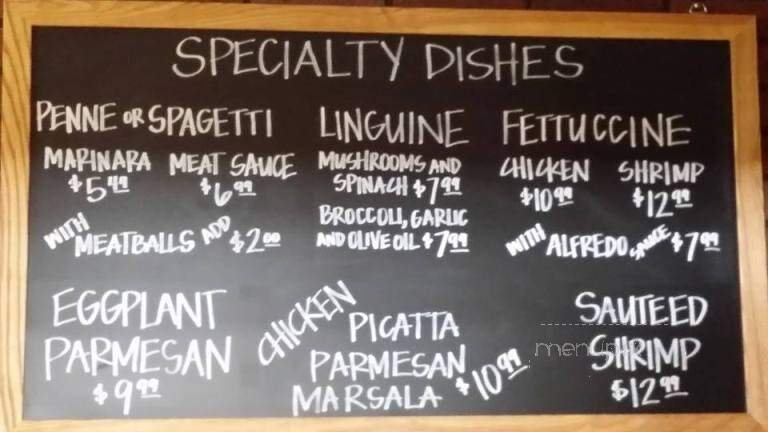 SPECIALTY DISHES
PENNE OR SPAGETTI
MARINARA MEAT SAUCE
$5.49 $6.99
WITH MEATBALLS ADD $2.00
LINGUINE
MUSHROOMS AND
SPINACH $7.99
BROCCOLI, GARLIC
AND OLIVE OIL $7.99
FETTUCCINE
CHICKEN SHRIMP
$10.99 $12.99
WITH ALFREDO SAUCE $7.99
EGGPLANT
PARMESAN
$9.99
CHICKEN PICATTA
PARMESAN
MARSALA $10.99
SAUTEED
SHRIMP
$12.99